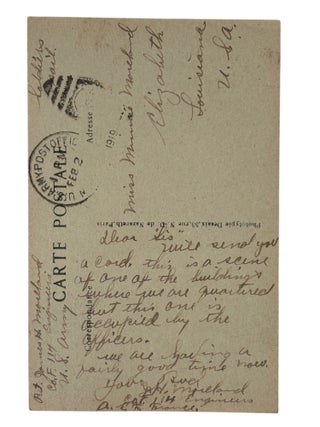 Soldiers
Mail
U.S. ARMY POST OFFICE
FEB 2
1919
CARTE POSTALE
Adresse
Correspondance
Phototypie Desaix, 33, rue N.-D. de Nazareth, Paris
Miss Minnie Moreland
Elizabeth
Louisiana
U.S.a
Dear "Sis"
Will send you
a card. this is a scene
of one of the buildings
where we are quartered
but this one is
occupied by the
officers.
we are having a
fairly good time now.
Your
Moreland
Co F. 114 Engineers
A. France.
Pvt. James H. Moreland
Co F. 114 Engineers
U. S. Army